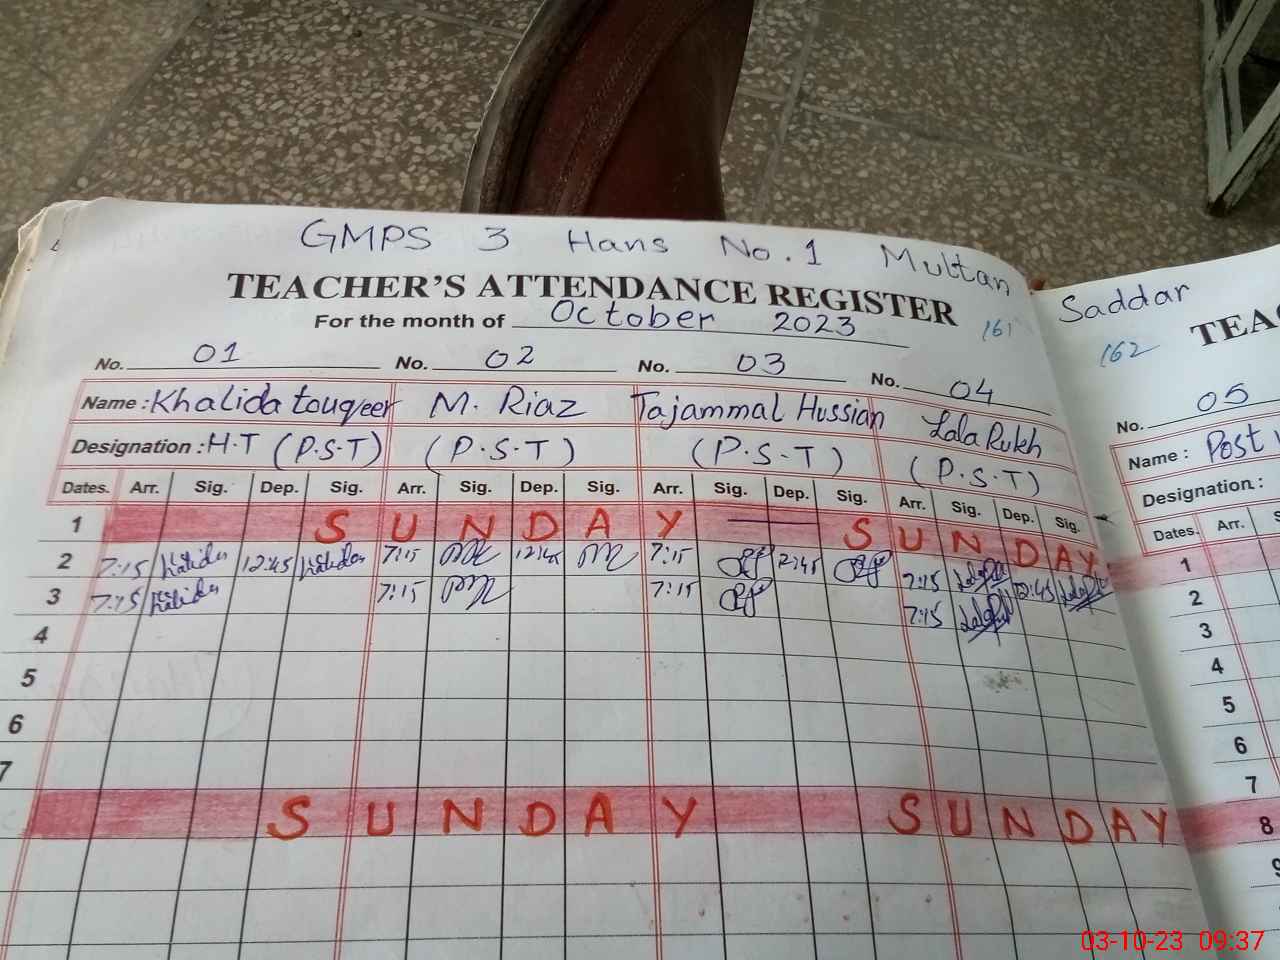 GMPS 3 Hans No. 1 Multan Saddar
TEACHER'S ATTENDANCE REGISTER
For the month of October 2023
161
No. 01 No. 02 No. 03 No. 04
Name : Khalida touqeer M. Riaz Tajammal Hussian Lala Rukh
Designation : H.T (P.S.T) (P.S.T) (P.S.T) (P.S.T)
Dates. Arr. Sig. Dep. Sig. Arr. Sig. Dep. Sig. Arr. Sig. Dep. Sig. Arr. Sig. Dep. Sig.
1 SUNDAY SUNDAY
2 7:15 Khalida 12:45 Khalida 7:15 12:45 7:15 12:45 7:15 12:45
3 7:15 Khalida 7:15 7:15 7:15
4
5
6
7
SUNDAY SUNDAY
162 TEAC
No. 05
Name : Post
Designation :
Dates. Arr. Sig.
1
2
3
4
5
6
7
8
9
03-10-23 09:37